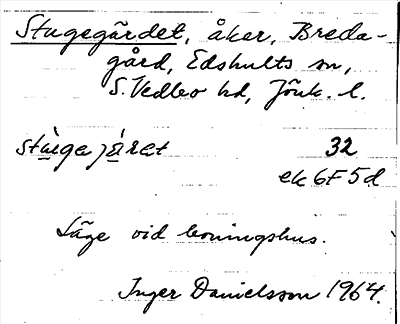 Stugegärdet, åker, Breda-
gård, Edshults sn,
S. Vedbo hd, Jönk. l.
stùgejǻrət 32
ek 6F5d
Läge vid boningshus.
Inger Danielsson 1964.